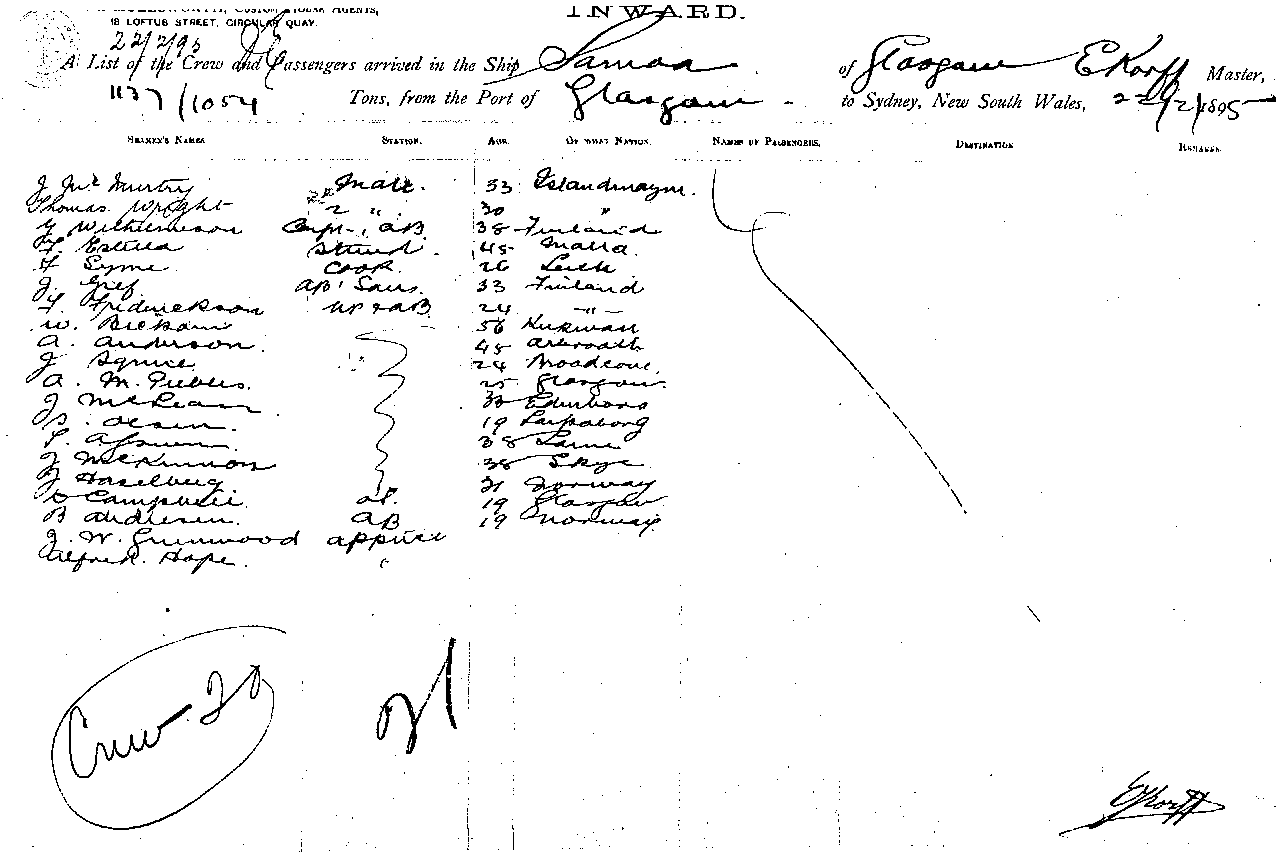 CUSTOM HOUSE AGENTS,
18 LOFTUS STREET, CIRCULAR QUAY.
INWARD.
22/2/95
A List of the Crew and Passengers arrived in the Ship Samoa of Glasgow E Korff Master,
1137/1054 Tons, from the Port of Glasgow to Sydney, New South Wales, 22/2/1895
SEAMEN'S NAMES STATION. AGE. OF WHAT NATION. NAMES OF PASSENGERS. DESTINATION REMARKS.
J Mc Murtry Mate. 33 Islandmagee.
Thomas Wright 2 " 30 "
Carpt, AB 38 Finland
F. Steward 45 Malta
Syme Cook. 26 Leith
J. Gref AB 33 Finland
F. Frederickson AB 24 -"-
W. 56
A. Anderson. 45 Arbroath
J Squire 24
A. M. Peebles. 25 Glasgow
J McLean 33
Olsen. 19
38 Larne
J McKinnon 38 Skye
Haselberg 21 Norway
Campbell 19 Glasgow
B Andresen. AB 19 Norway
J. W. Greenwood
Alfred. Hope. "
Crew 20
21
E Korff